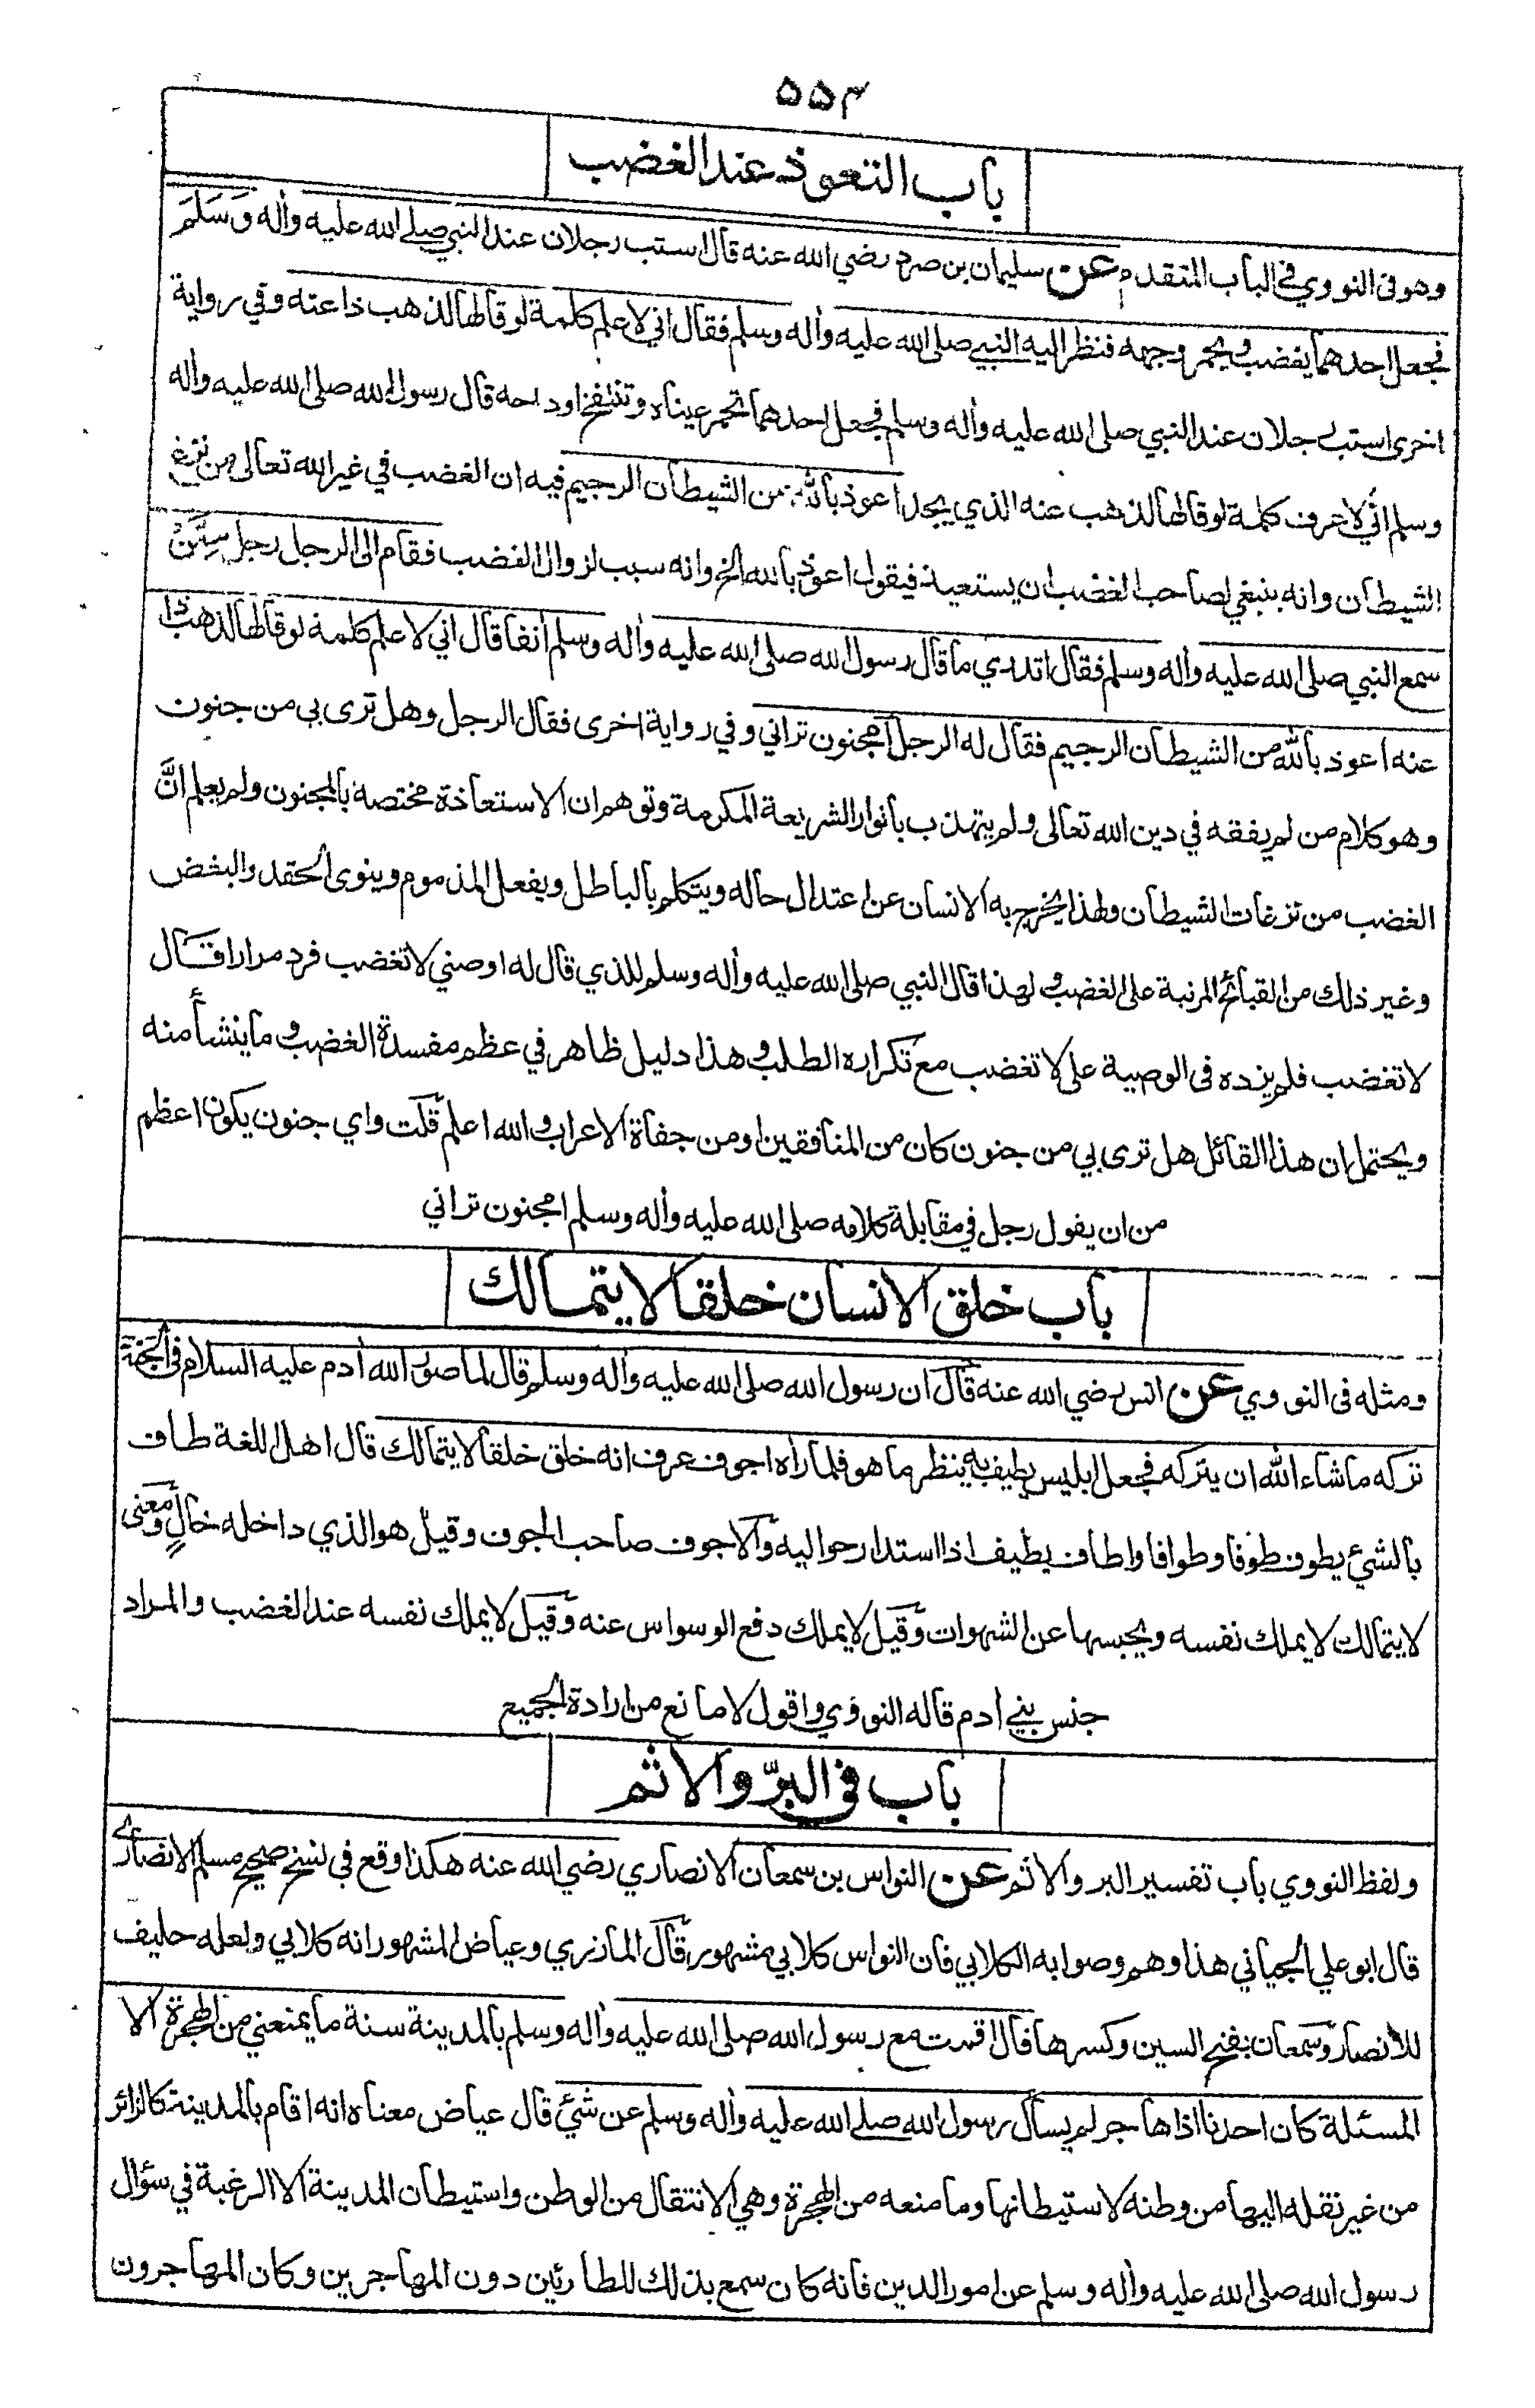 ۵۵۴
باب التعوذ عند الغضب
وهو فى النووي في الباب المتقدم عن سليمان بن صرد رضي الله عنه قال استب رجلان عند النبي صلى الله عليه وأله وَسَلَّمَ
فجعل احدهما يغضب ويحمر وجهه فنظر اليه النبي صلى الله عليه وأله وسلم فقال اني لاعلم كلمة لو قالها لذهب ذا عنه وفي رواية
اخرى استب رجلان عند النبي صلى الله عليه وأله وسلم فجعل احدهما تحمر عيناه وتنتفخ اوداجه قال رسول الله صلى الله عليه وأله
وسلم انّي لاعرف كلمة لو قالها لذهب عنه الذي يجد اعوذ بالله من الشيطان الرجيم فيه ان الغضب في غير الله تعالى من نزغ
الشيطان وانه ينبغي لصاحب الغضب ان يستعيذ فيقول اعوذ بالله الخ وانه سبب لزوال الغضب فقام الى الرجل رجل مِمَّنْ
سمع النبي صلى الله عليه وأله وسلم فقال اتدري ما قال رسول الله صلى الله عليه وأله وسلم أنفا قال اني لاعلم كلمة لو قالها لذهب ذا
عنه اعوذ بالله من الشيطان الرجيم فقال له الرجل أمجنون تراني وفي رواية اخرى فقال الرجل وهل ترى بي من جنون
وهو كلام من لم يفقه في دين الله تعالى ولم يتهذب بأنوار الشريعة المكرمة وتوهم ان الاستعاذة مختصة بالمجنون ولم يعلم انَّ
الغضب من نزغات الشيطان ولهذا يخرج به الانسان عن اعتدال حاله ويتكلم بالباطل ويفعل المذموم وينوى الحقد والبغض
وغير ذلك من القبائح المرتبة على الغضب ولهذا قال النبي صلى الله عليه وأله وسلم للذي قال له اوصني لا تغضب فردد مرارا قال
لا تغضب فلم يزده فى الوصية على لا تغضب مع تكراره الطلب وهذا دليل ظاهر في عظم مفسدة الغضب وما ينشأ منه
ويحتمل ان هذا القائل هل ترى بي من جنون كان من المنافقين او من جفاة الاعراب والله اعلم قلت واي جنون يكون اعظم
من ان يقول رجل في مقابلة كلامه صلى الله عليه وأله وسلم امجنون تراني
باب خلق الانسان خلقا لا يتمالك
ومثله فى النووي عن انس رضي الله عنه قال ان رسول الله صلى الله عليه وأله وسلم قال لما صور الله أدم عليه السلام فى الجنة
تركه ما شاء الله ان يتركه فجعل ابليس يطيف به ينظر ما هو فلما رأه اجوف عرف انه خلق خلقا لا يتمالك قال اهل اللغة طاف
بالشئ يطوف طوفا وطوافا واطاف يطيف اذا استدار حواليه والاجوف صاحب الجوف وقيل هو الذي داخله خالٍ ومعنى
لا يتمالك لا يملك نفسه ويحبسها عن الشهوات وقيل لا يملك دفع الوسواس عنه وقيل لا يملك نفسه عند الغضب والمراد
جنس بني أدم قاله النووي واقول لا مانع من ارادة الجميع
باب فى البرّ والاثم
ولفظ النووي باب تفسير البر والاثم عن النواس بن سمعان الانصاري رضي الله عنه هكذا وقع في نسخ صحيح مسلم الانصاري
قال ابو علي الجياني هذا وهم وصوابه الكلابي فان النواس كلابي مشهور قال المازري وعياض المشهور انه كلابي ولعله حليف
للأنصار وسمعان بفتح السين وكسرها قال اقمت مع رسول الله صلى الله عليه وأله وسلم بالمدينة سنة ما يمنعني من الهجرة الا
المسئلة كان احدنا اذا هاجر لم يسأل رسول الله صلى الله عليه وأله وسلم عن شئ قال عياض معناه انه اقام بالمدينة كالزائر
من غير نقله اليها من وطنه لاستيطانها وما منعه من الهجرة وهي الانتقال من الوطن واستيطان المدينة الا الرغبة في سؤال
رسول الله صلى الله عليه وأله وسلم عن امور الدين فانه كان سمع بذلك للطارئين دون المهاجرين وكان المهاجرون